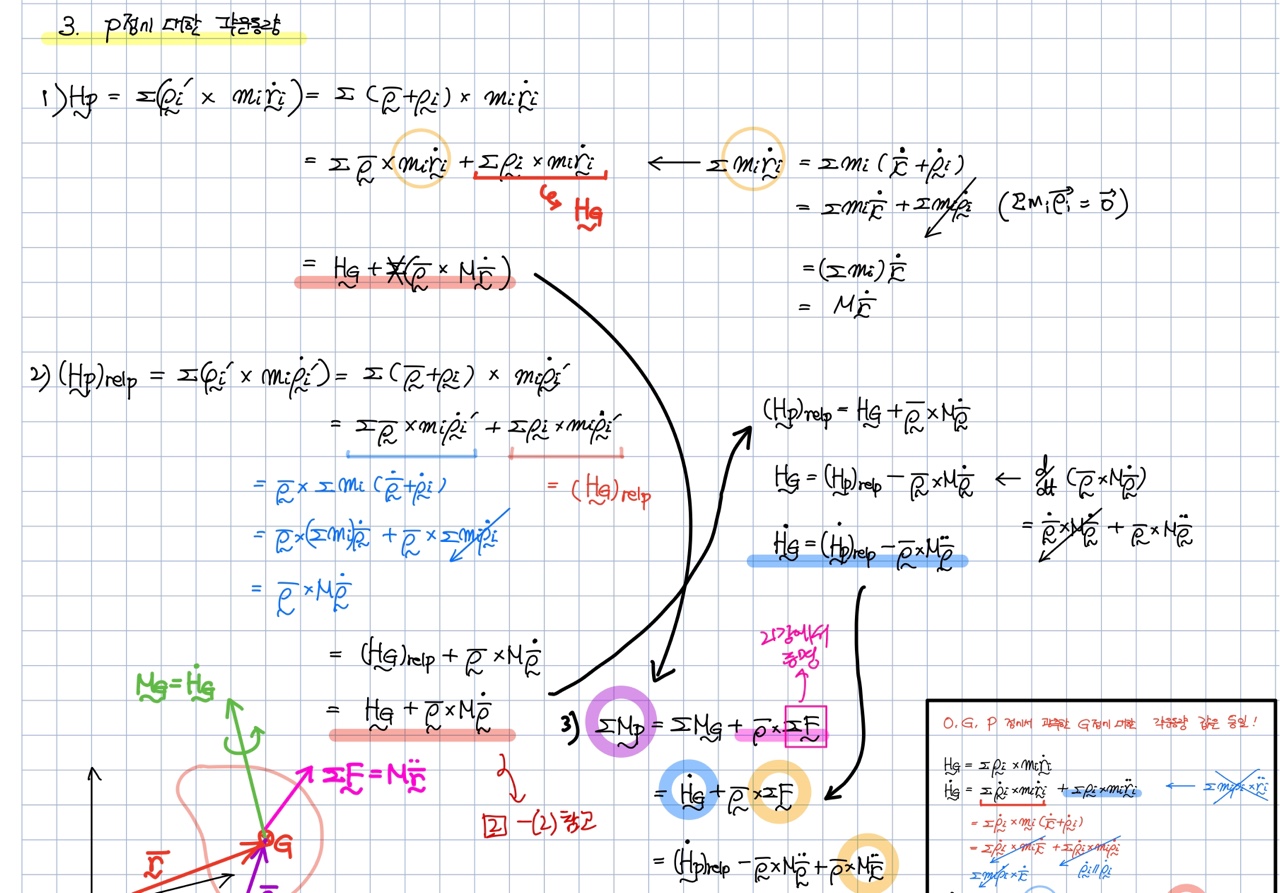 3. P점에 대한 각운동량
1) H̰p = Σ(ρ̰i′ × miṙ̰i) = Σ(ρ̰̄+ρ̰i) × miṙ̰i
= Σρ̰̄ × miṙ̰i + Σρ̰i × miṙ̰i ← Σmiṙ̰i = Σmi(ṙ̰̄ + ρ̰̇i)
H̰G
= Σmiṙ̰̄ + Σmiρ̰̇i (Σmiρ⃗i = 0⃗)
= H̰G + Σ(ρ̰̄ × Mṙ̰̄)
= (Σmi)ṙ̰̄
= Mṙ̰̄
2) (H̰p)relp = Σ(ρ̰i′ × miρ̰̇i′) = Σ(ρ̰̄+ρ̰i) × miρ̰̇i′
= Σρ̰̄ × miρ̰̇i′ + Σρ̰i × miρ̰̇i′
= ρ̰̄ × Σmi(ρ̰̄̇+ρ̰̇i) = (H̰G)relp
= ρ̰̄ × (Σmi)ρ̰̄̇ + ρ̰̄ × Σmiρ̰̇i
= ρ̰̄ × Mρ̰̄̇
= (H̰G)relp + ρ̰̄ × Mρ̰̄̇
= H̰G + ρ̰̄ × Mρ̰̄̇
2 -(2) 참고
(H̰p)relp = H̰G + ρ̰̄ × Mρ̰̄̇
H̰G = (H̰p)relp - ρ̰̄ × Mρ̰̄̇ ← d/dt (ρ̰̄ × Mρ̰̄̇)
= ρ̰̄̇ × Mρ̰̄̇ + ρ̰̄ × Mρ̰̄̈
Ḣ̰G = (Ḣ̰p)relp - ρ̰̄ × Mρ̰̄̈
증명
3) ΣM̰p = ΣM̰G + ρ̰̄ × ΣF̰
= Ḣ̰G + ρ̰̄ × ΣF̰
= (Ḣ̰p)relp - ρ̰̄ × Mρ̰̄̈ + ρ̰̄ × Mr̰̄̈
M̰G = Ḣ̰G
ΣF̰ = Mr̰̄̈
G
r̰̄
ρ̰̄
O, G, P 점에서 관측한 G점에 대한 각운동량 값은 동일!
H̰G = Σρ̰i × miṙ̰i
Ḣ̰G = Σρ̰̇i × miṙ̰i + Σρ̰i × mir̰̈i ← Σmiρ̰i × r̰̈i
= Σρ̰̇i × mi(ṙ̰̄+ρ̰̇i)
= Σρ̰̇i × miṙ̰̄ + Σρ̰̇i × miρ̰̇i
Σmiρ̰̇i × ṙ̰̄ ρ̰̇i // ρ̰̇i